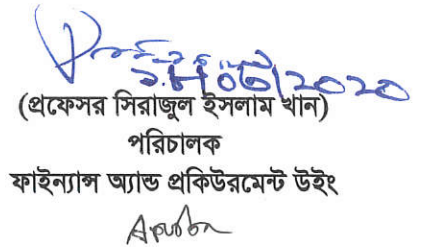 (প্রফেসর সিরাজুল ইসলাম খান)
পরিচালক
ফাইন্যান্স অ্যান্ড প্রকিউরমেন্ট উইং